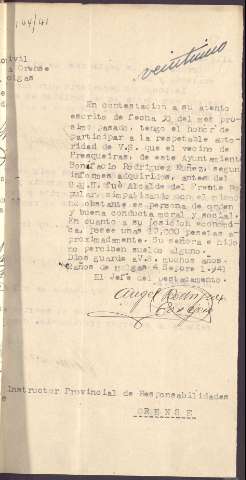 veintiuno
ivil
Orense
En contestación a su atento
escrito de fecha 20 del mes pro-
ximo pasado, tengo el honor de
participar a la respetable auto-
ridad de V.S. que el vecino de
Presqueiras, de este Ayuntamiento
Bonifacio Rodriguez Nuñez, segun
informes adquiridos, antes del
G.M.N. fué Alcalde del Frente Po-
pular, simpatizando con el mismo
no obstante es persona de orden
y buena conducta moral y social.
En cuanto a su posición economi-
ca, posee unas 17.000 pesetas a-
proximadamente. Su señora e hijo
no perciben sueldo alguno.
Dios guarde a V.S. muchos años.
Baños de Molgas 4 Sepbre 1.941
El Jefe del Destacamento.
Angel
Instructor Provincial de Responsabilidades
ORENSE